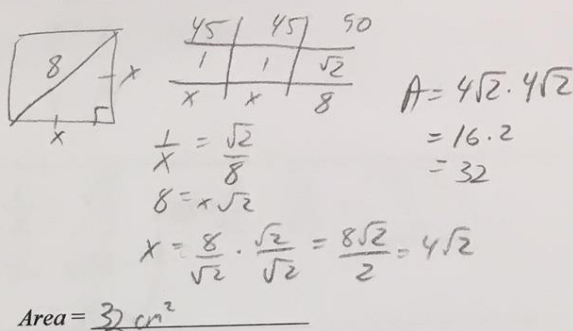 45 45 90
1 1 √2
x x 8
8
x
x
1/x = √2/8
8 = x√2
x = 8/√2 · √2/√2 = 8√2/2 = 4√2
A = 4√2 · 4√2
= 16 · 2
= 32
Area = 32 cm²